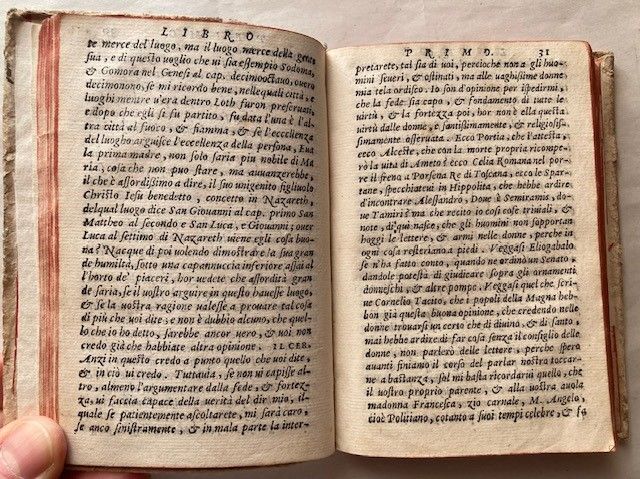 LIBRO
te merce del luogo, ma il luogo merce della gente
sua, e di questo uoglio che ui sia essempio Sodoma,
& Gomora nel Genesi al cap. decimoottauo, ouero
decimonono, se mi ricordo bene, nelle quali città, e
luoghi mentre u'era dentro Loth furon preseruati,
e dopo che egli si fu partito, fu data l'una è l'al-
tra città al fuoco, & fiamma, & se l'eccellenza
del luogho arguisce l'eccellenza della persona, Eua
la prima madre, non solo saria piu nobile di Ma
ria, cosa che non puo stare, ma auuanzerebbe,
il che è assordissimo a dire, il suo unigenito figliuolo
Christo Iesu benedetto, concetto in Nazareth,
del qual luogo dice San Giouanni al cap. primo San
Mattheo al secondo e San Luca, e Giouanni; ouer
Luca al settimo di Nazareth uiene egli cosa buo-
na? Nacque di poi uolendo dimostrare la sua gran
de humiltà, sotto una capannuccia inferiore assai al
l'horto de' piaceri, hor uedete che assordità gran
de saria, se il uostro arguire in questo hauesse luogo,
& se la uostra ragione ualesse a prouare tal cosa
di più che uoi dite; e non è dubbio alcuno, che quel-
lo che io ho detto, sarebbe ancor uero, & uoi non
credo già che habbiate altra opinione. IL CER.
Anzi in questo credo a punto quello che uoi dite,
& in ciò ui credo. Tuttauia, se non ui capisse al-
tro, almeno l'argumentare dalla fede, & fortez-
za, ui faccia capace della uerità del dir mio, il-
quale se patientemente ascoltarete, mi sarà caro,
se anco sinistramente, & in mala parte la inter-
PRIMO. 31
pretarete, tal sia di uoi, percioche non a gli huo-
mini seueri, & ostinati, ma alle uaghissime donne
mia tela ordisco. Io son d'opinione per ispedirmi,
che la fede sia capo, & fondamento di tutte le
uirtù, & la fortezza poi, hor non è ella questa
uirtù dalle donne, e santissimamente, & religiosis-
simamente osseruata. Ecco Portia, che l'attesta,
ecco Alceste, che con la morte propria ricompe-
rò la uita di Ameto? ecco Celia Romana nel por-
re il freno a Porsena Re di Toscana, ecco le Spar-
tane, specchiateui in Hippolita, che hebbe ardire
d'incontrare Alessandrò, Doue è Semiramis, do-
ue Tamiri? ma che recito io così cose triuiali, &
note, di qui nasce, che gli huomini non sopportan
hoggi le lettere, & armi nelle donne, perche in
ogni cosa resteriano a piedi. Veggasi Eliogabalo
se n'ha fatto conto, quando ne ordinò un Senato,
dandole potestà di giudicare sopra gli ornamenti
donneschi, & altre pompe. Veggasi quel che scri-
ue Cornelio Tacito, che i popoli della Magna heb-
bon già questa buona opinione, che credendo nelle
donne trouarsi un certo che di diuino, & di santo,
mai hebbe ardire di far cosa senza il consiglio delle
donne, non parlerò delle lettere, perche spero
auanti finiamo il corso del parlar nostro toccar-
ne a bastanza, sol mi basta ricordarui quello, che
il uostro proprio parente, & alla uostra auola
madonna Francesca, zio carnale, M. Angelo,
cioè Politiano, cotanto a suoi tempi celebre, & sa